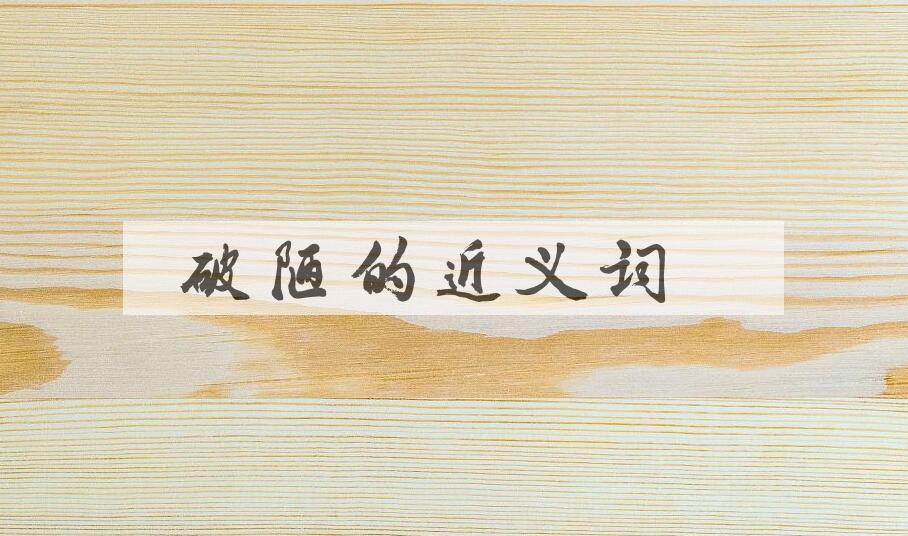 破陋的近义词